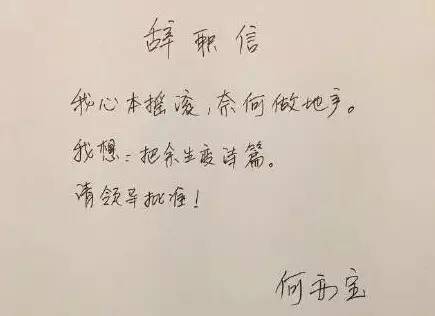 辞职信
我心本摇滚，奈何做地产。
我想：把余生变诗篇。
请领导批准！
何宝